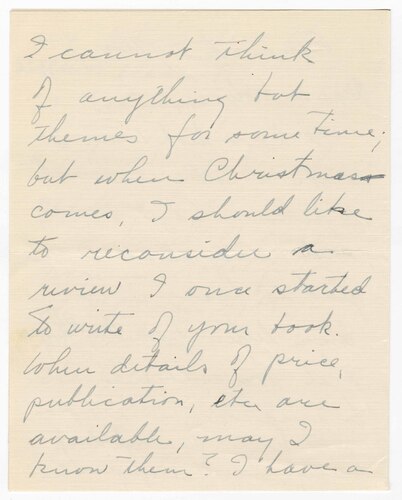 I cannot think
of anything but
themes for some time;
but when Christmas
comes, I should like
to reconsider a
review I once started
to write of your book.
When details of price,
publication, etc. are
available, may I
know them? I have a